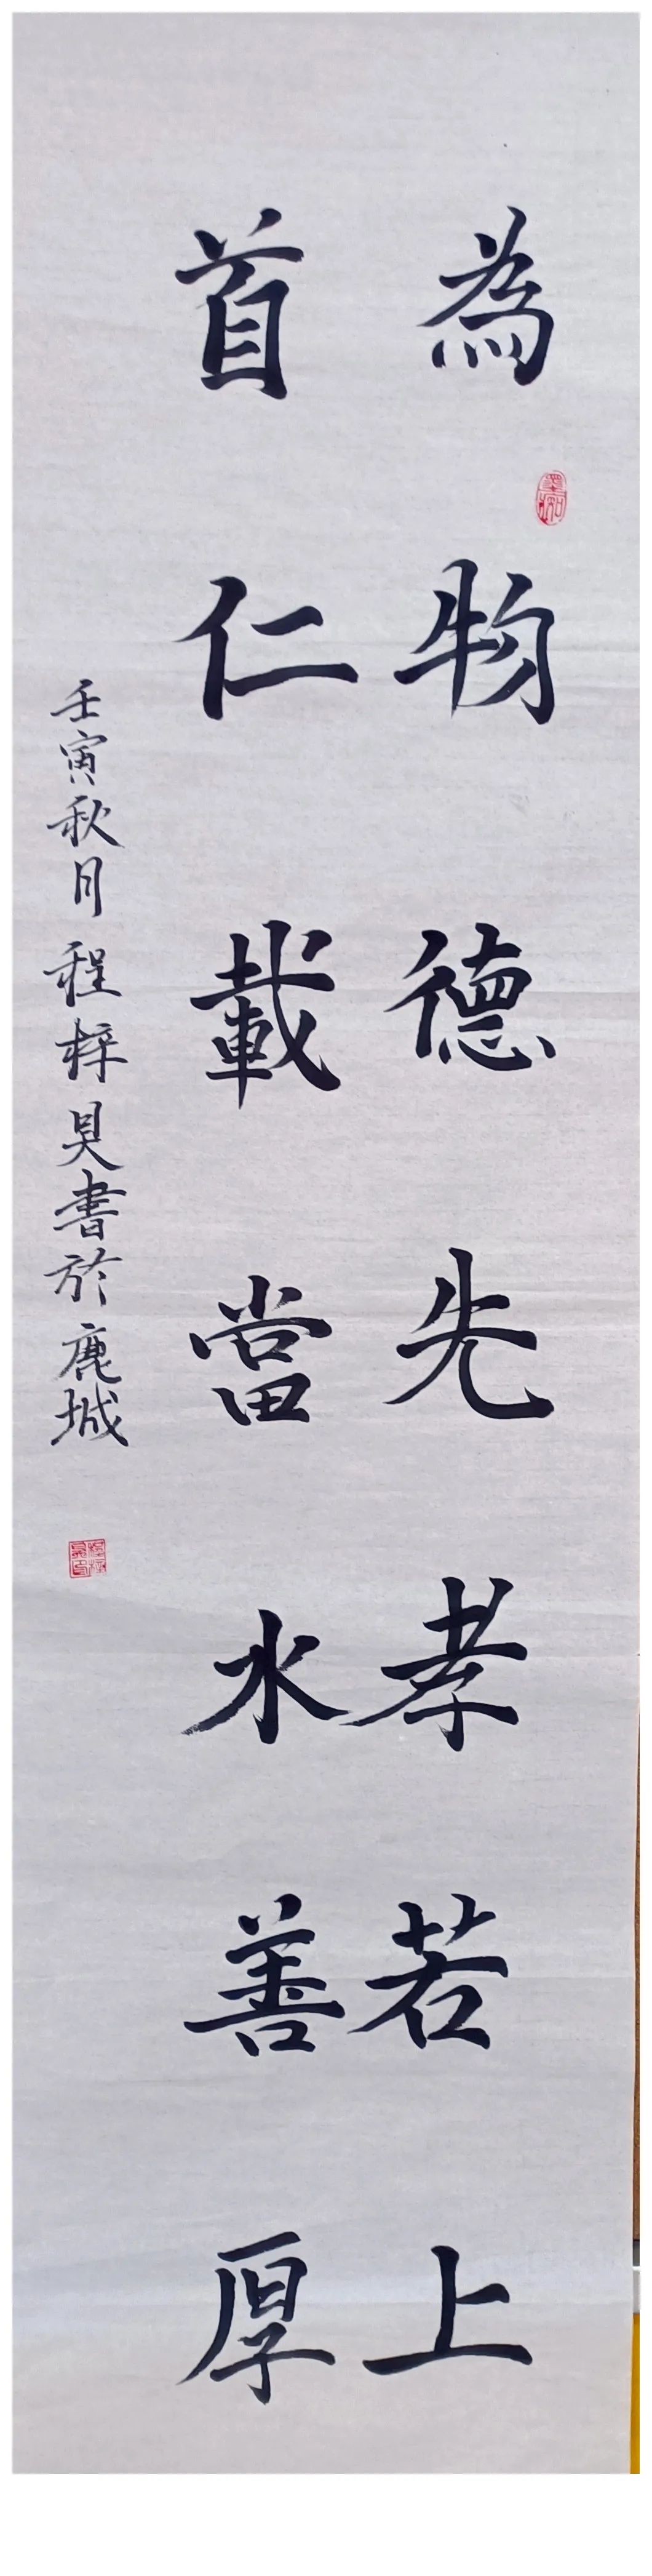 為物德先孝若上
首仁載當水善厚
壬寅秋月程梓昊書於鹿城